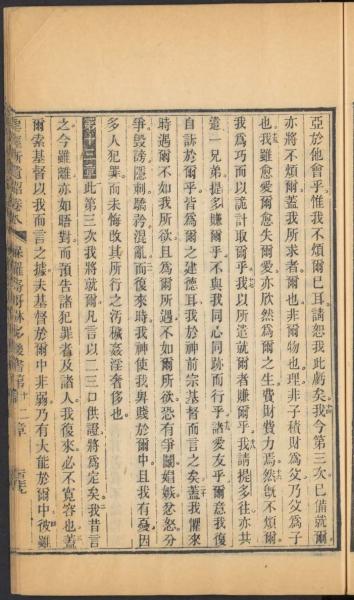 亞於他會乎惟我不煩爾已耳請恕我此虧矣我今第三次已備就爾
亦將不煩爾蓋我所求者爾也非爾物也理非子積財為父乃父為子
也我雖愈愛爾愈失爾愛亦欣然為爾之生費財費力焉然既不煩爾
我為巧而以詭計取爾乎我以所遣就爾者賺爾乎我請提多徃亦共
遣一兄弟提多賺爾乎不與我同心同跡而行乎諸愛友乎爾意我復
自訴於爾乎皆為爾之建德耳我於神前宗基督而言之矣蓋我懼來
時遇爾不如我所欲且為爾所遇不如爾所欲恐有爭鬭娼嫉忿怒分
爭毀謗隱刺驕矜混亂而復來時我神使我卑賤於爾中且我有憂因
多人犯罪而未悔改其所行之汚穢姦淫奢侈也
此第三次我將就爾凡言以二三口供證將為定矣我昔言
之今雖離亦如晤對而預告諸犯罪者及諸人我復來必不寬容也蓋
爾索基督以我而言之據夫基督於爾中非弱乃有大能於爾中彼雖